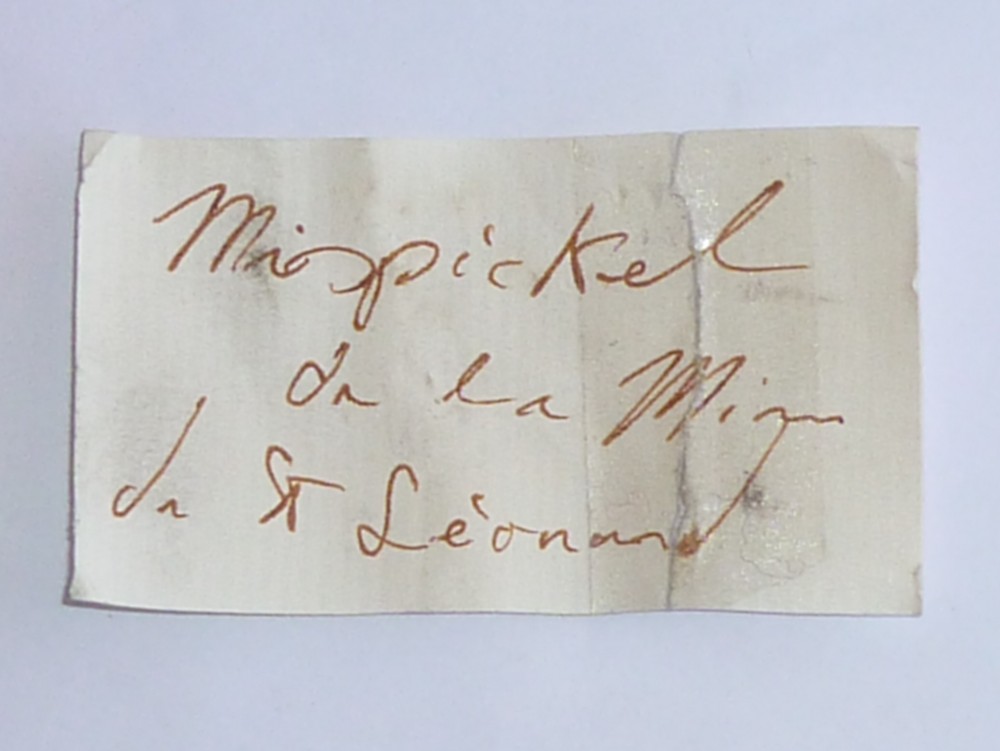 Mispickel
de la Mine
de St Léonard